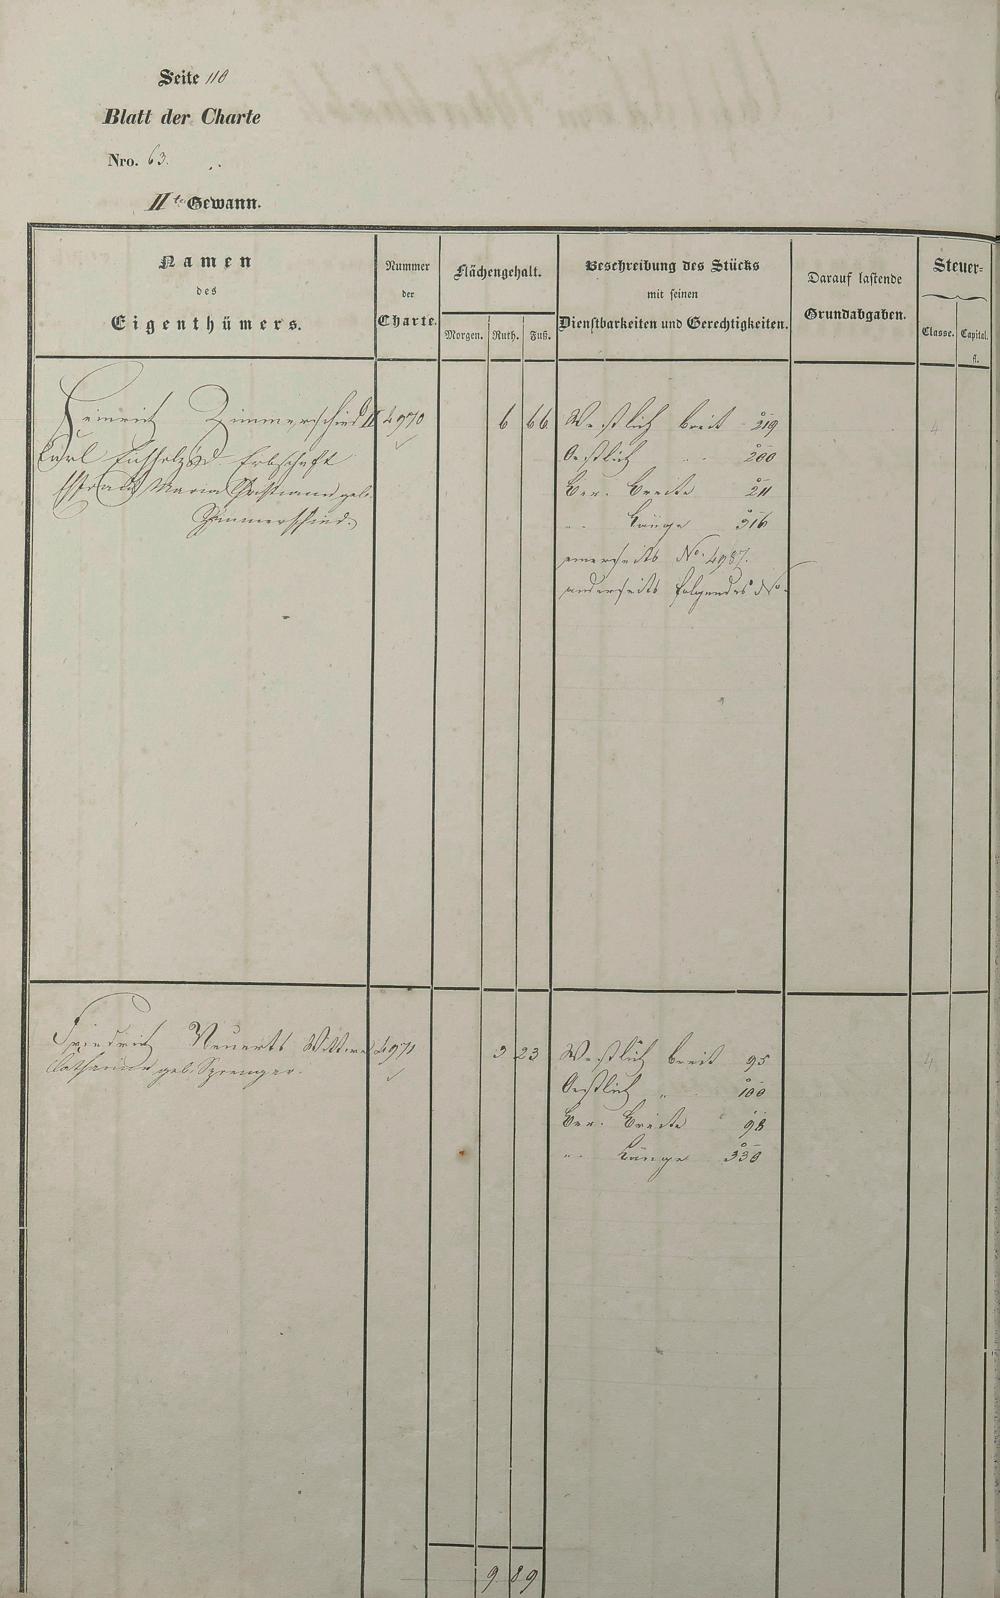 Seite 110
Blatt der Charte
Nro. 63.
IIte Gewann.
Namen
des
Eigenthümers.
Nummer
der
Charte.
Flächengehalt.
Morgen. Ruth. Fuß.
Beschreibung des Stücks
mit seinen
Dienstbarkeiten und Gerechtigkeiten.
Darauf lastende
Grundabgaben.
Steuer=
Classe. Capital.
fl.
Heinrich Zimmerschied II 4970 6 66 Westlich breit 219 4
Carl Erbschaft Oestlich 200
Maria Christiane geb. Ber. Breite 211
Zimmerschied. Länge 316
einerseits No. 4987.
anderseits folgendes No.
Friedrich Neuerts Wittwe 4971 3 23 Westlich breit 95 4
Catharine geb. Sprenger. Oestlich " 100
Ber. Breite 98
" Länge 330
9 89